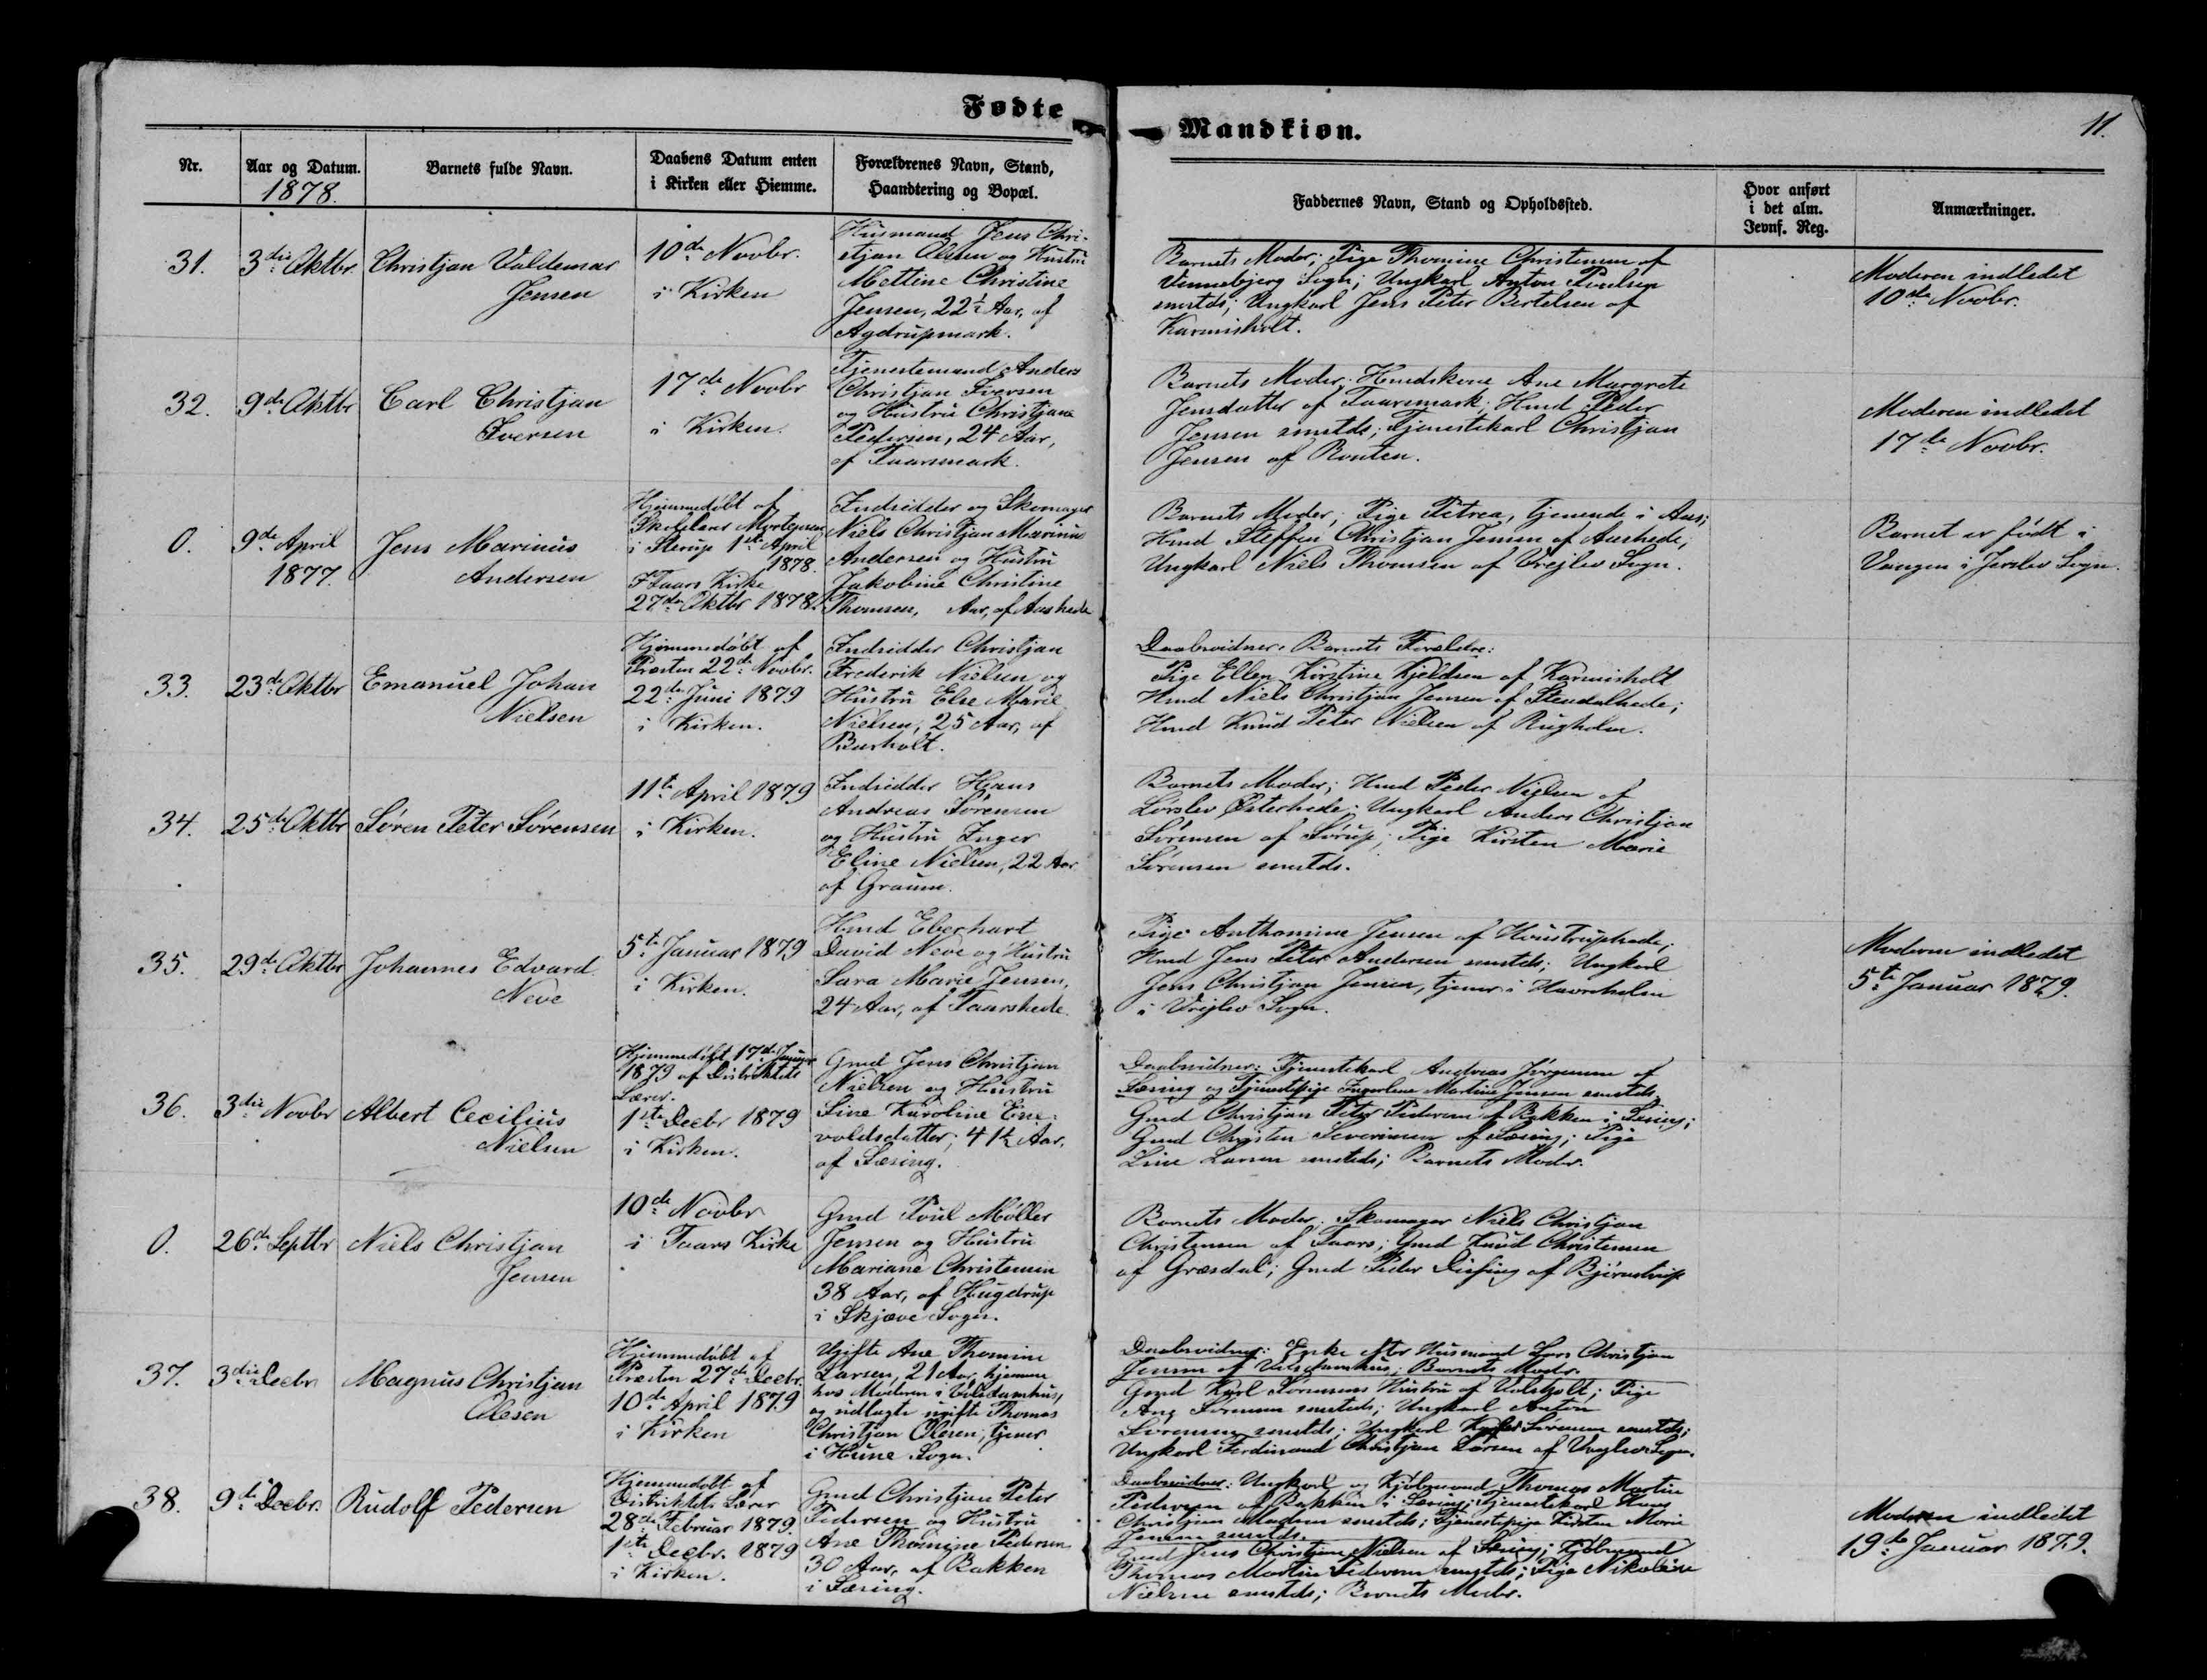 Fødte
Mandkiøn.
11.
Nr.
Aar og Datum.
1878.
Barnets fulde Navn.
Daabens Datum enten
i Kirken eller Hiemme.
Forældrenes Navn, Stand,
Haandtering og Bopæl.
Faddernes Navn, Stand og Opholdssted.
Hvor anført
i det alm.
Jevnf. Reg.
Anmærkninger.
31.
3die Oktbr.
Christjan Valdemar
Jensen
10de Novbr.
i Kirken
Husmand Jens Chri-
stjan Olesen og Hustru
Mettine Christine
Jensen, 22½ Aar, af
Agdrupmark.
Barnets Moder; Pige Thomine Christensen af
Vennebjerg Sogn; Ungkarl Anton Poulsen
smstds; Ungkarl Jens Peter Bertelsen af
Karmisholt.
Moderen indledet
10de Novbr.
32.
9de Oktbr
Carl Christjan
Iversen
17de Novbr
i Kirken.
Tjenestemand Anders
Christjan Iversen
og Hustru Christjane
Pedersen, 24 Aar,
af Taarsmark.
Barnets Moder; Hmdskone Ane Margrete
Jensdatter af Taarsmark; Hmd Peder
Jensen smstds; Tjenestekarl Christjan
Jensen af Rønten.
Moderen indledet
17de Novbr.
0.
9de April
1877.
Jens Marinus
Andersen
Hjemmedøbt af
Skolelærer Mortensen
i Sterup 1ste April
1878.
I Taars Kirke
27de Oktbr 1878.
Indsidder og Skomager
Niels Christjan Marinus
Andersen og Hustru
Jakobine Christine
Thomsen, Aar, af Aashede
Barnets Moder; Pige Petrea, tjenende i Aas;
Hmd Steffen Christjan Jensen af Aashede;
Ungkarl Niels Thomsen af Vrejlev Sogn.
Barnet er født i
Vangen i Jerslev Sogn.
33.
23de Oktbr
Emanuel Johan
Nielsen
Hjemmedøbt af
Præsten 22de Novbr.
22de Juni 1879
i Kirken.
Indsidder Christjan
Frederik Nielsen og
Hustru Else Marie
Nielsen, 25 Aar, af
Burholt.
Daabsvidner: Barnets Forældre:
Pige Ellen Kirstine Kjeldsen af Karmisholt
Hmd Niels Christjan Jensen af Stendalhede;
Hmd Knud Peter Nielsen af Rugholm.
34.
25de Oktbr
Søren Peter Sørensen
11te April 1879
i Kirken.
Indsidder Hans
Andreas Sørensen
og Hustru Inger
Eline Nielsen, 22 Aar
af Graum.
Barnets Moder; Hmd Peder Nielsen af
Lørslev Østerhede; Ungkarl Anders Christjan
Sørensen af Sørup; Pige Kirsten Marie
Sørensen smstds.
35.
29de Oktbr
Johannes Edvard
Neve
5te Januar 1879
i Kirken.
Hmd Eberhart
David Neve og Hustru
Sara Marie Jensen,
24 Aar, af Taarshede.
Pige Anthomine Jensen af Houstruphede;
Hmd Jens Peter Andersen smstds; Ungkarl
Jens Christjan Jensen, tjener i Havreholm
i Vrejlev Sogn.
Moderen indledet
5te Januar 1879.
36.
3die Novbr
Albert Cecilius
Nielsen
Hjemmedøbt 17de Januar
1879 af Distriktets
Lærer.
1ste Decbr 1879
i Kirken.
Gmd Jens Christjan
Nielsen og Hustru
Sine Karoline Ene-
voldsdatter, 41½ Aar,
af Sæsing.
Daabsvidner: Tjenestekarl Andreas Jørgensen af
Sæsing og Tjenestepige Ingerlene Martine Jensen smstds
Gmd Christjan Peter Pedersen af Bakken i Sæsing;
Gmd Christen Severinsen af Sæsing; Pige
Line Larsen smsteds; Barnets Moder.
0.
26de Septbr
Niels Christjan
Jensen
10de Novbr
i Taars Kirke
Gmd Poul Møller
Jensen og Hustru
Mariane Christensen
38 Aar, af Hugdrup
i Skjæve Sogn.
Barnets Moder; Skomager Niels Christjan
Christensen af Taars; Gmd Knud Christensen
af Græsdal; Gmd Peder af Bjørnstrup
37.
3die Decbr
Magnus Christjan
Olesen
Hjemmedøbt af
Præsten 27de Decbr.
10de April 1879
i Kirken
Ugifte Ane Thomine
Larsen, 21 Aar, hjemme
hos Moderen i
og udlagte ugifte Thomas
Christjan Olesen, tjener
i Hune Sogn.
Daabsvidner: Enke efter Husmand Lars Christjan
Jensen af Barnets Moder.
Gmd Karl Sørensens Hustru af Pige
Ane Sørensen smsteds; Ungkarl Anton
Sørensen smstds; Ungkarl Sørensen smstds;
Ungkarl Ferdinand Christjan Larsen af Vrejlev Sogn.
38.
9de Decbr.
Rudolf Pedersen
Hjemmedøbt af
Distriktets Lærer
28de Februar 1879.
1ste Decbr. 1879
i Kirken.
Gmd Christjan Peter
Pedersen og Hustru
Ane Thomine Pedersen
30 Aar, af Bakken
i Sæsing.
Daabsvidner: Ungkarl og Kjøbmand Thomas Martin
Pedersen af Bakken i Sæsing; Tjenestekarl Hans
Christjan Madsen smstds; Tjenestepige Kirsten Marie
Jensen smstds.
Gmd Jens Christjan Nielsen af Sæsing; Kjøbmand
Thomas Martin Pedersen smstds; Pige Nikoline
Nielsen smstds; Barnets Moder.
Moderen indledet
19de Januar 1879.